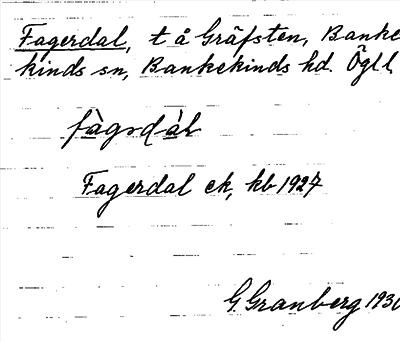 Fagerdal, t å Gräfsten, Banke
kinds sn, Bankekinds hd. Ögll
fàgrdàl
Fagerdal ek, kb 1927
G. Granberg 1930